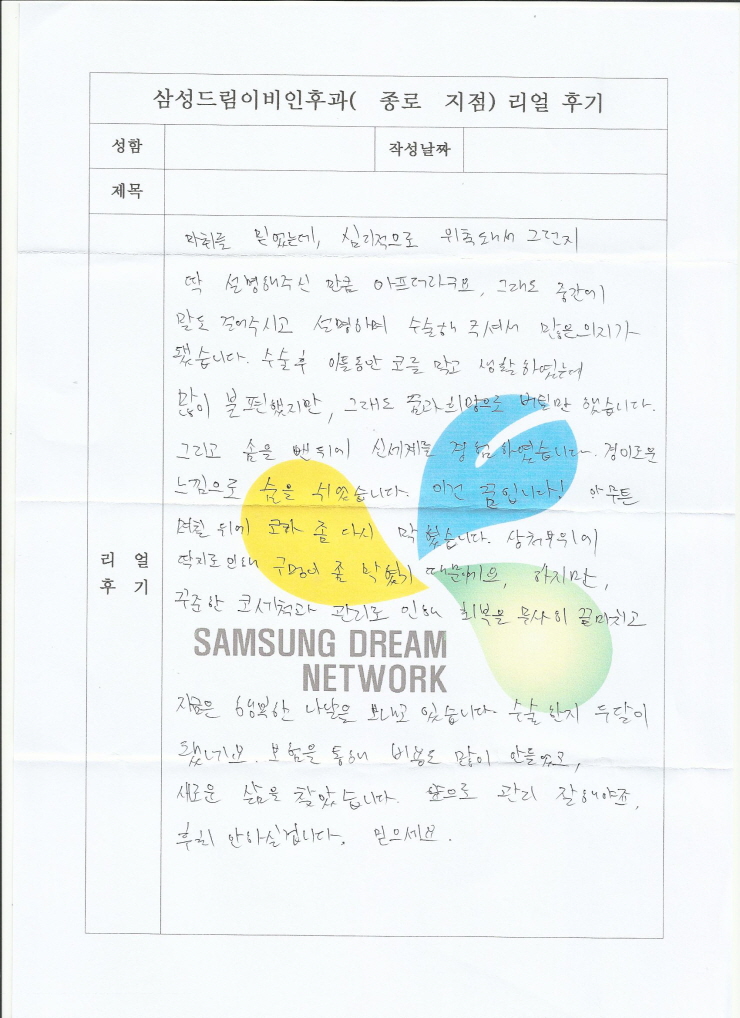 삼성드림이비인후과( 종로 지점) 리얼 후기
성함 작성날짜
제목
마취를 믿었는데, 심리적으로 위축돼서 그런지
딱 설명해주신 만큼 아프더라구요, 그래도 중간에
말도 걸어주시고 설명하며 수술해 주셔서 많은 의지가
됐습니다. 수술후 이틀동안 코를 막고 생활하였는데
많이 불편했지만, 그래도 꿈과 희망으로 버틸만 했습니다.
그리고 솜을 뺀 뒤에 신세계를 경험하였습니다. 경이로운
느낌으로 숨을 쉬었습니다. 이건 꿈입니다! 아무튼
며칠 뒤에 코가 좀 다시 막혔습니다. 상처부위에
딱지로 인해 구멍이 좀 막혔기 때문에요, 하지만,
꾸준한 코세척과 관리로 인해 회복을 무사히 끝마치고
리얼
후기
SAMSUNG DREAM
NETWORK
지금은 행복한 나날을 보내고 있습니다 수술 한지 두달이
됐네요. 보험을 통해 비용도 많이 안들었고,
새로운 삶을 찾았습니다. 앞으로 관리 잘해야죠,
후회 안하실겁니다. 믿으세요.